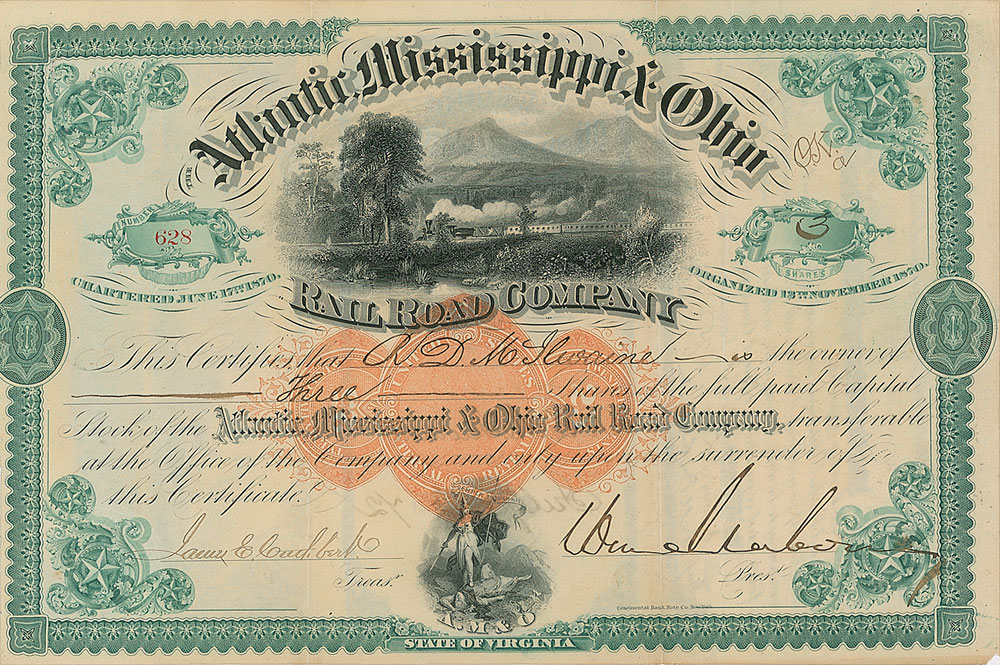 THE Atlantic Mississippi & Ohio
O.K.
NUMBER
628
3
SHARES
CHARTERED JUNE 17TH 1870.
ORGANIZED 12TH NOVEMBER 1870.
RAIL ROAD COMPANY
This Certifies that R. D. McIlwaine is the owner of
Three Shares of the full paid Capital
Stock of the Atlantic, Mississippi & Ohio Rail Road Company, transferable
at the Office of the Company and only upon the surrender of
this Certificate.
James E. Cuthbert
Treasr.
Wm Mahone
Prest.
Continental Bank Note Co. New York
STATE OF VIRGINIA